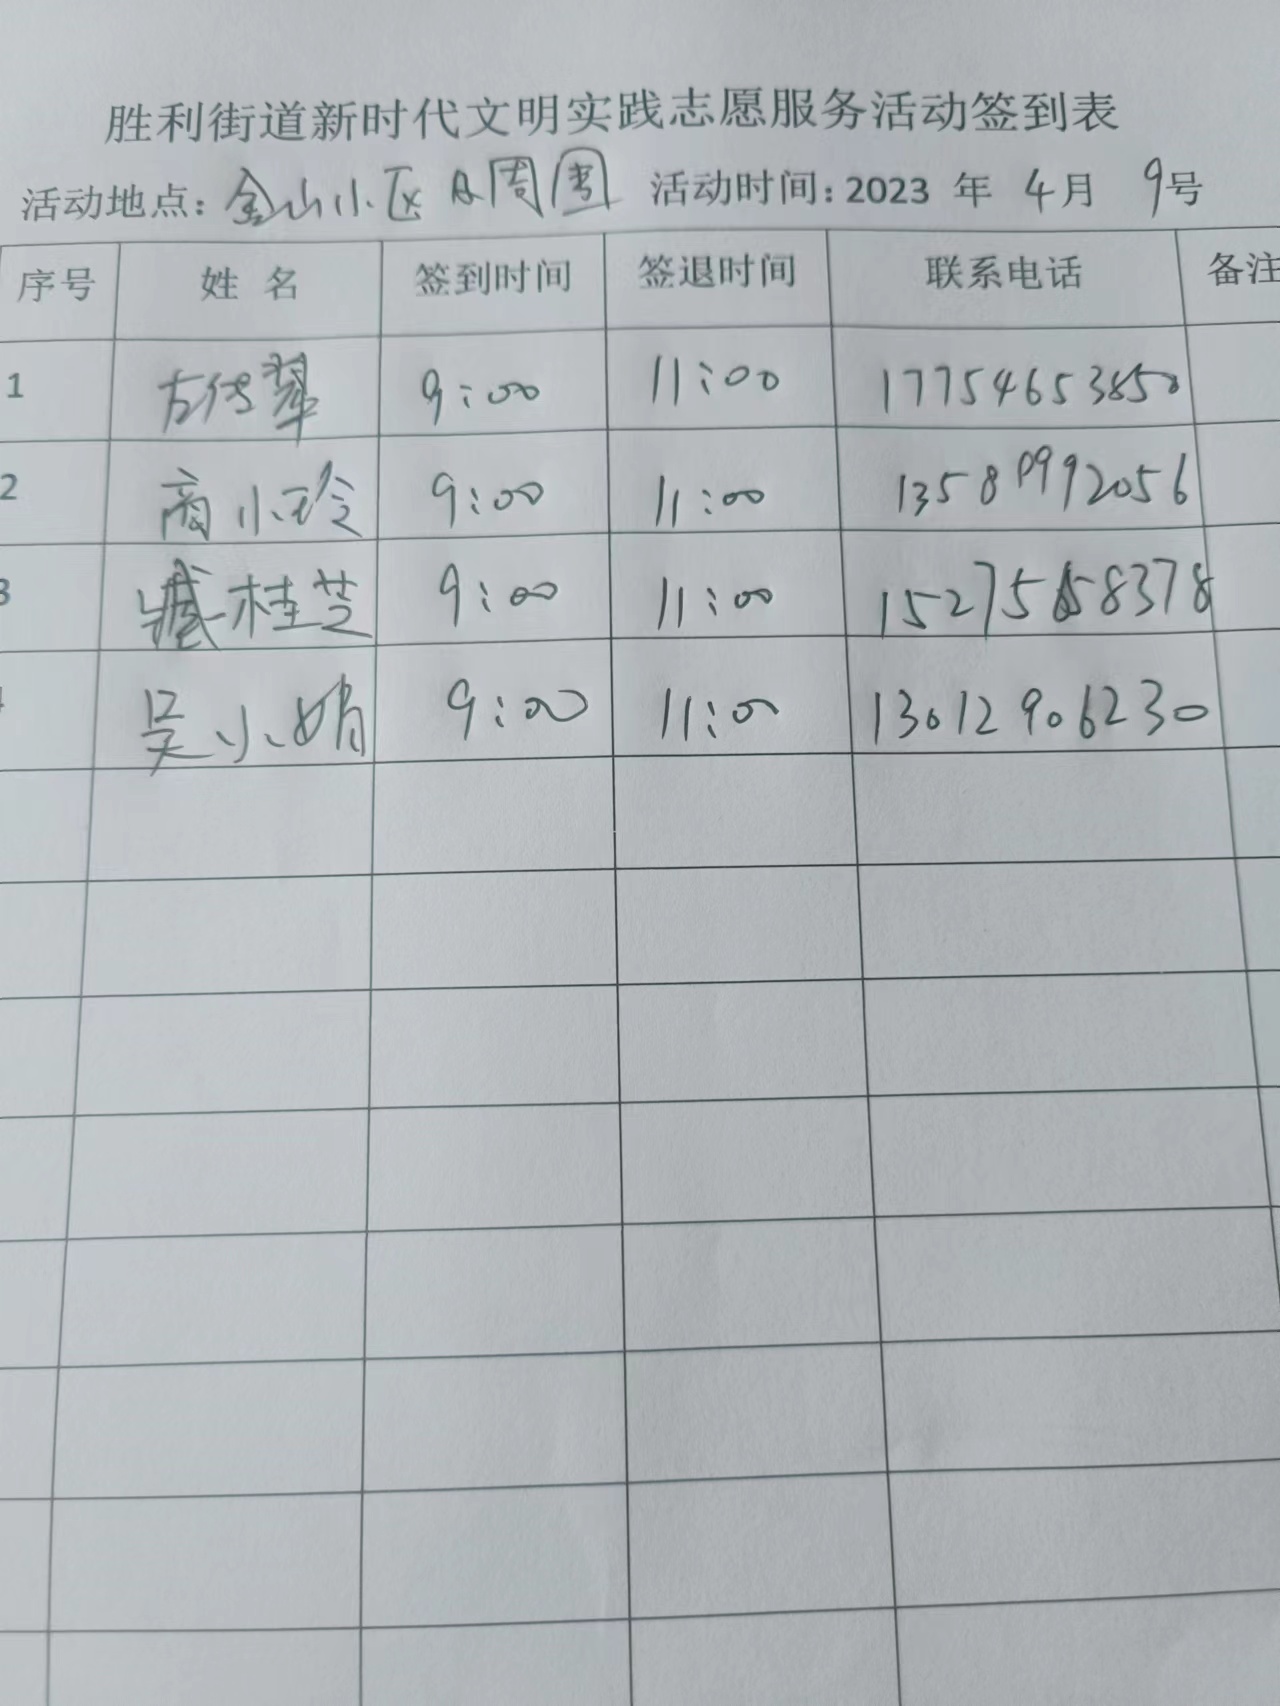 胜利街道新时代文明实践志愿服务活动签到表
活动地点: 金山小区及周围 活动时间: 2023 年 4月 9号
序号 姓名 签到时间 签退时间 联系电话 备注
1 9:00 11:00 17754653850
2 商小玲 9:00 11:00 13589992056
3 臧桂芝 9:00 11:00 15275658378
吴小娟 9:00 11:00 13012906230